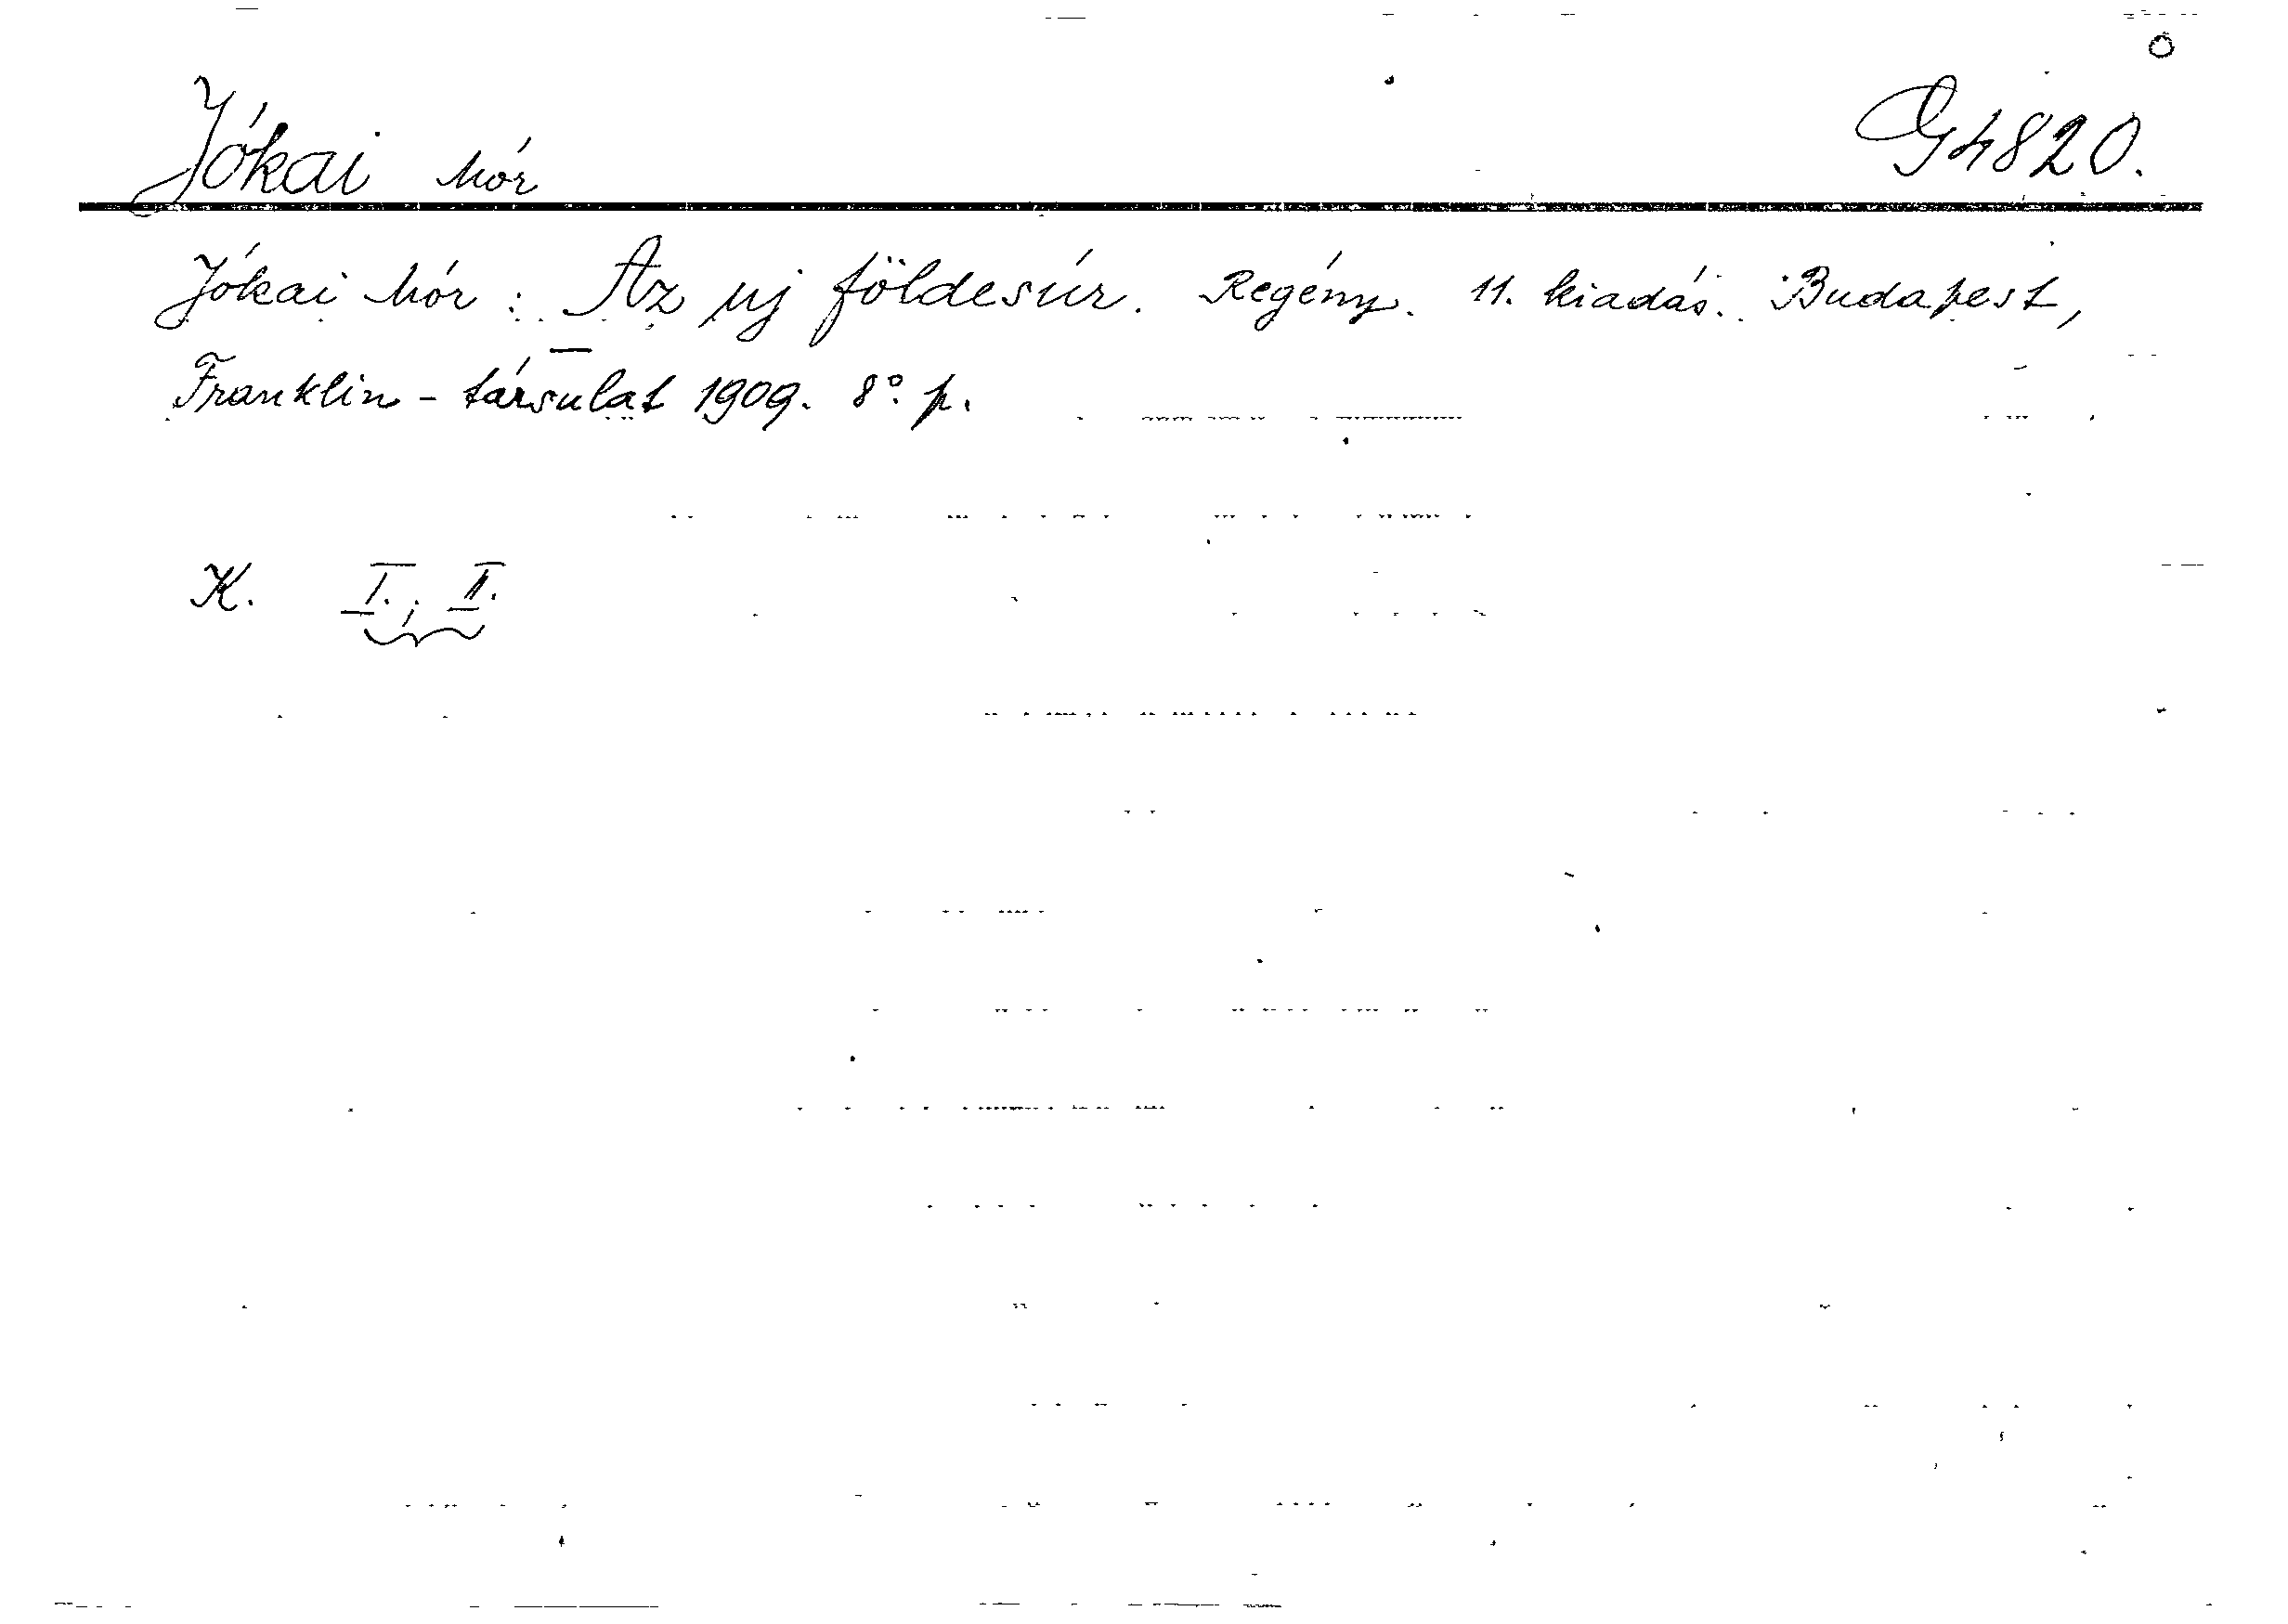 Jókai Mór G4820.
Jókai Mór: Az uj földesúr. Regény. 11. kiadás. Budapest,
Franklin-társulat 1909. 8° p.
K. I., II.